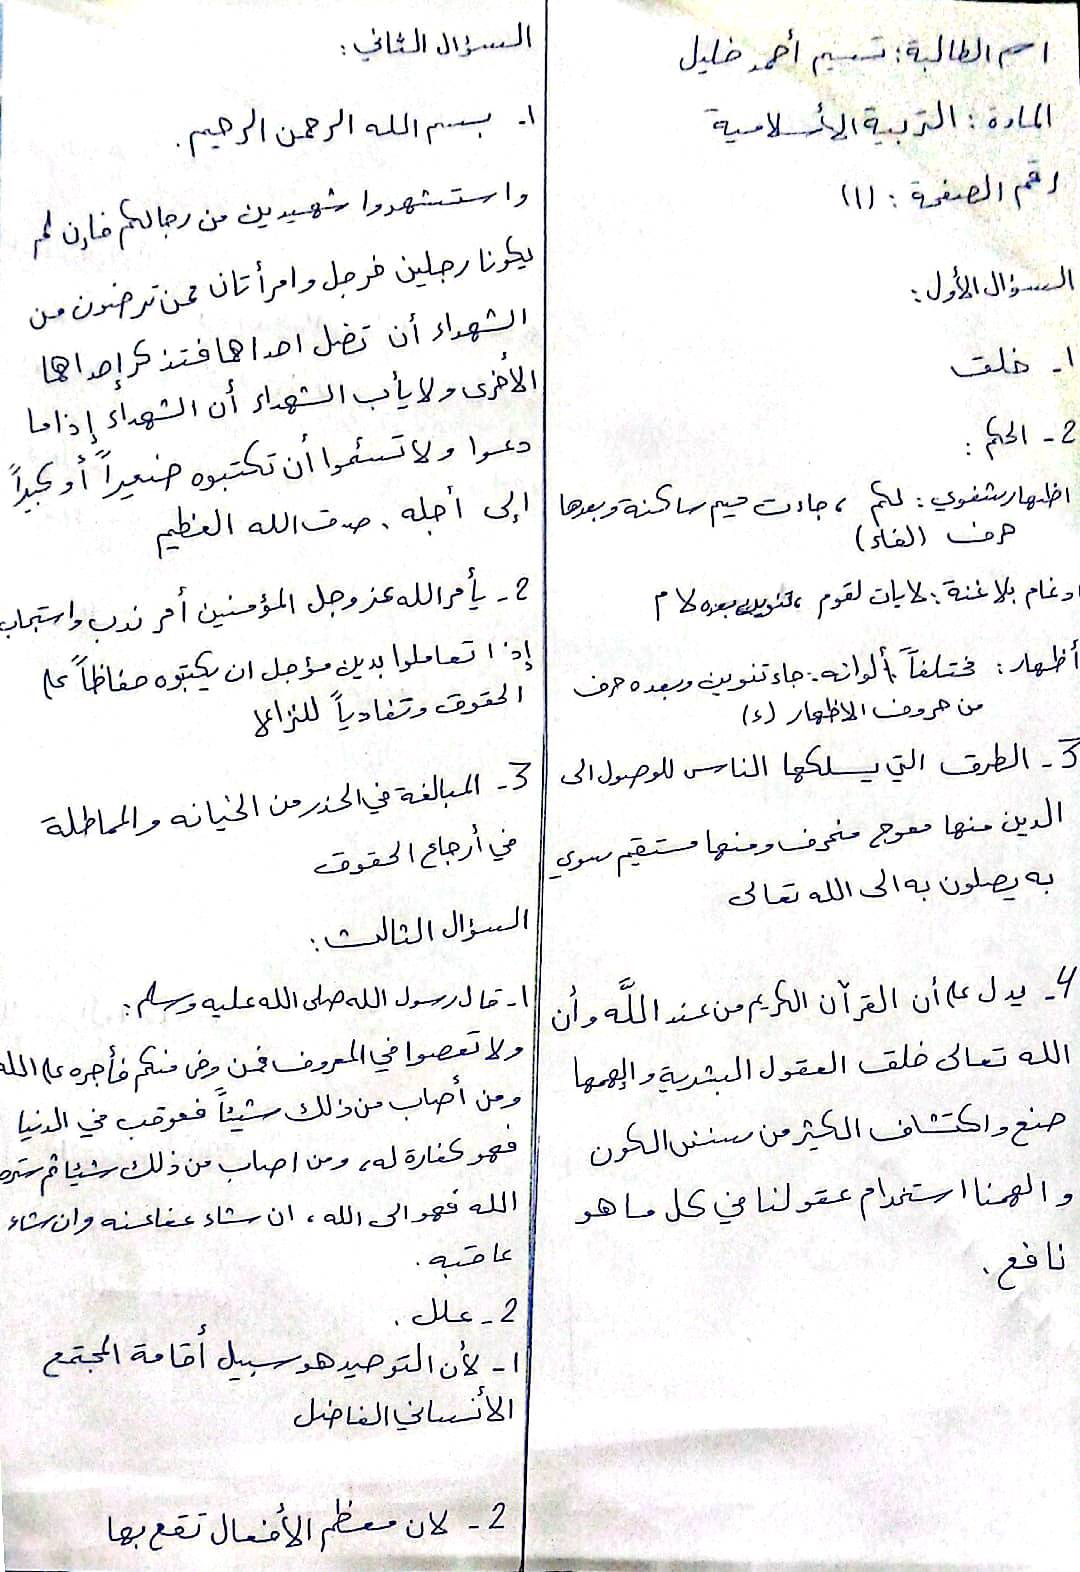 اسم الطالبة: تسنيم أحمد خليل
المادة: التربية الأسلامية
رقم الصفحة: (١)
السؤال الأول:
١- خلق
2- الحكم:
اظهار شفوي: لكم ، جاءت ميم ساكنة وبعدها
حرف (الفاء)
ادغام بلا غنة: لايات لقوم ، تنوين بعده لام
أظهار: مختلفاً ألوانه: جاء تنوين وبعده حرف
من حروف الاظهار (ء)
3- الطرق التي يسلكها الناس للوصول الى
الدين منها معوج منحرف ومنها مستقيم سوي
به يصلون به الى الله تعالى
4- يدل على أن القرآن الكريم من عند اللَّه وأن
الله تعالى خلق العقول البشرية والهمها
صنع واكتشاف الكثير من سنن الكون
و الهمنا استخدام عقولنا في كل ما هو
نافع.
السؤال الثاني:
١- بسم الله الرحمن الرحيم.
واستشهدوا شهيدين من رجالكم فإن لم
يكونا رجلين فرجل وامرأتان ممن ترضون من
الشهداء أن تضل احداهما فتذكر إحداهما
الأخرى ولا يأب الشهداء أن الشهداء إذا ما
دعوا ولا تسئموا أن تكتبوه صغيراً أو كبيراً
إلى أجله. صدق الله العظيم
2- يأمر الله عز وجل المؤمنين أمر ندب واستحباب
إذا تعاملوا بدين مؤجل ان يكتبوه حفاظاً على
الحقوق وتفادياً للنزاع
3- المبالغة في الحذر من الخيانه والمماطلة
في أرجاع الحقوق
السؤال الثالث:
١- قال رسول الله صلى الله عليه وسلم:
ولا تعصوا في المعروف فمن وفى منكم فأجره على الله
ومن أصاب من ذلك شيئاً فعوقب في الدنيا
فهو كفارة له، ومن اصاب من ذلك شيئا ثم ستره
الله فهو الى الله، ان شاء عفا عنه وان شاء
عاقبه.
2- علل.
١- لأن التوحيد هو سبيل أقامة المجتمع
الأنساني الفاضل
2- لان معظم الأفعال تقع بها